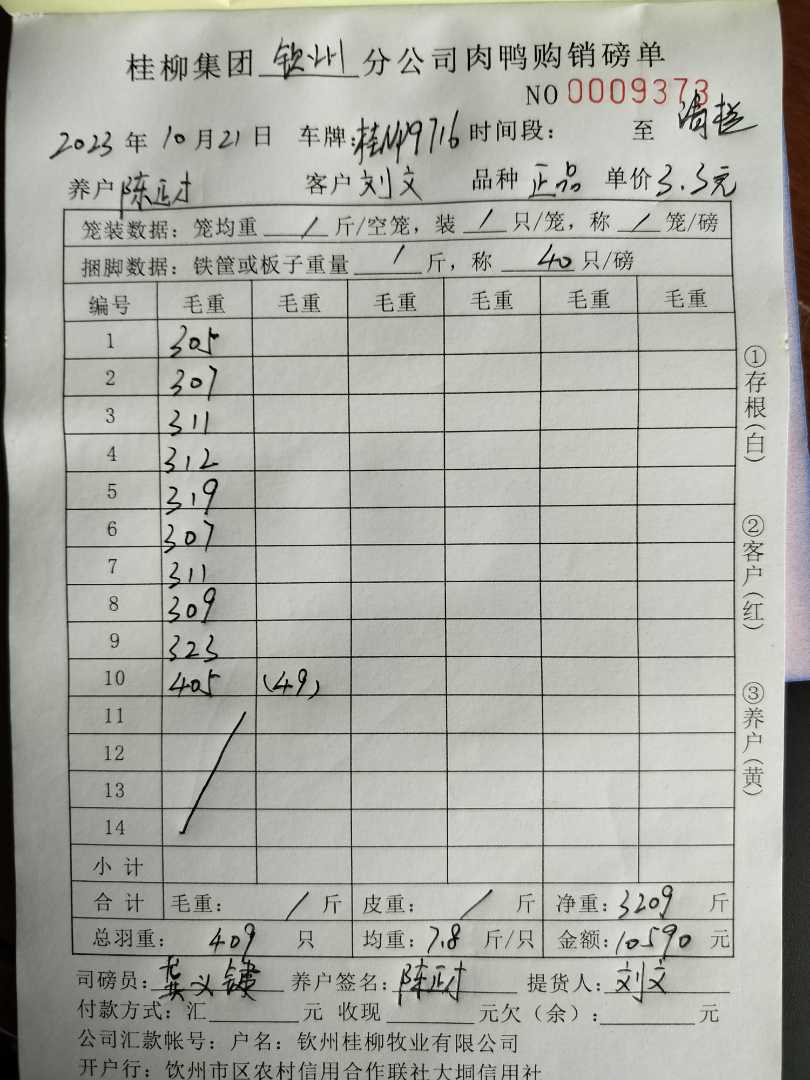 桂柳集团 钦州 分公司肉鸭购销磅单
NO 0009373
2023 年 10 月 21 日 车牌:桂N49716 时间段: 至 清栏
养户 陈正才 客户 刘文 品种 正品 单价 3.3元
笼装数据: 笼均重 / 斤/空笼, 装 / 只/笼, 称 / 笼/磅
捆脚数据: 铁筐或板子重量 / 斤, 称 40 只/磅
编号 毛重 毛重 毛重 毛重 毛重 毛重
1 305
2 307
3 311
4 312
5 319
6 307
7 311
8 309
9 323
10 405 (49)
11
12
13
14
小计
合计 毛重: / 斤 皮重: / 斤 净重: 3209 斤
总羽重: 409 只 均重: 7.8 斤/只 金额: 10590 元
司磅员: 龚义键 养户签名: 陈正才 提货人: 刘文
付款方式: 汇 元 收现 元欠(余): 元
公司汇款帐号: 户名: 钦州桂柳牧业有限公司
开户行: 钦州市区农村信用合作联社大垌信用社
①存根(白)
②客户(红)
③养户(黄)